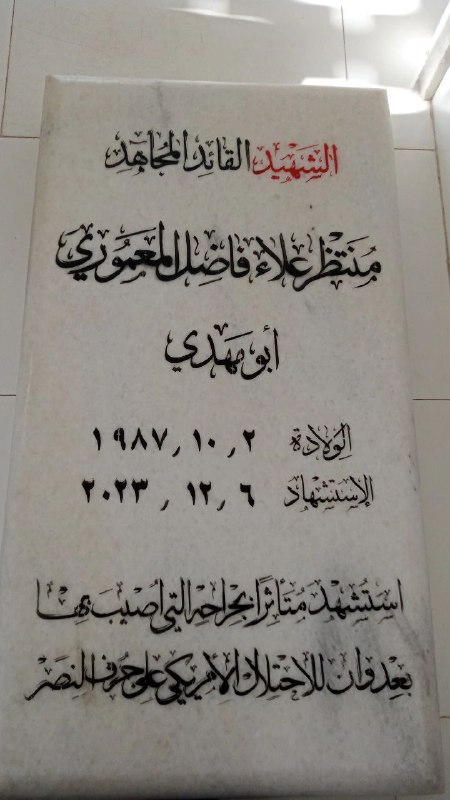 الشهيد القائد المجاهد
منتظر علاء فاضل المعموري
أبو مهدي
الولادة ٢ / ١٠ / ١٩٨٧
الإستشهاد ٦ / ١٢ / ٢٠٢٣
استشهد متأثرا بجراحه التي أصيب بها
بعدوان للاحتلال الأمريكي على جرف النصر